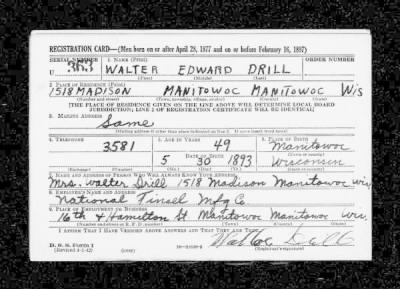 REGISTRATION CARD—(Men born on or after April 28, 1877 and on or before February 16, 1897)
SERIAL NUMBER 1. NAME (Print) ORDER NUMBER
U 363 WALTER EDWARD DRILL
(First) (Middle) (Last)
2. PLACE OF RESIDENCE (Print)
1518 MADISON MANITOWOC MANITOWOC WIS
(Number and street) (Town, township, village, or city) (County) (State)
[THE PLACE OF RESIDENCE GIVEN ON THE LINE ABOVE WILL DETERMINE LOCAL BOARD
JURISDICTION; LINE 2 OF REGISTRATION CERTIFICATE WILL BE IDENTICAL]
3. MAILING ADDRESS
Same
[Mailing address if other than place indicated on line 2. If same insert word same]
4. TELEPHONE 5. AGE IN YEARS 6. PLACE OF BIRTH
3581 49 Manitowoc
DATE OF BIRTH (Town or county)
5 30 1893 Wisconsin
(Mo.) (Day) (Yr.) (State or country)
7. NAME AND ADDRESS OF PERSON WHO WILL ALWAYS KNOW YOUR ADDRESS
Mrs. Walter Drill 1518 Madison Manitowoc Wis
8. EMPLOYER'S NAME AND ADDRESS
National Tinsel Mfg Co
9. PLACE OF EMPLOYMENT OR BUSINESS
16th & Hamilton St Manitowoc Manitowoc Wis.
(Number and street or R. F. D. number) (Town) (County) (State)
I AFFIRM THAT I HAVE VERIFIED ABOVE ANSWERS AND THAT THEY ARE TRUE.
D. S. S. Form 1
(Revised 4-1-42) (over) (Registrant's signature)